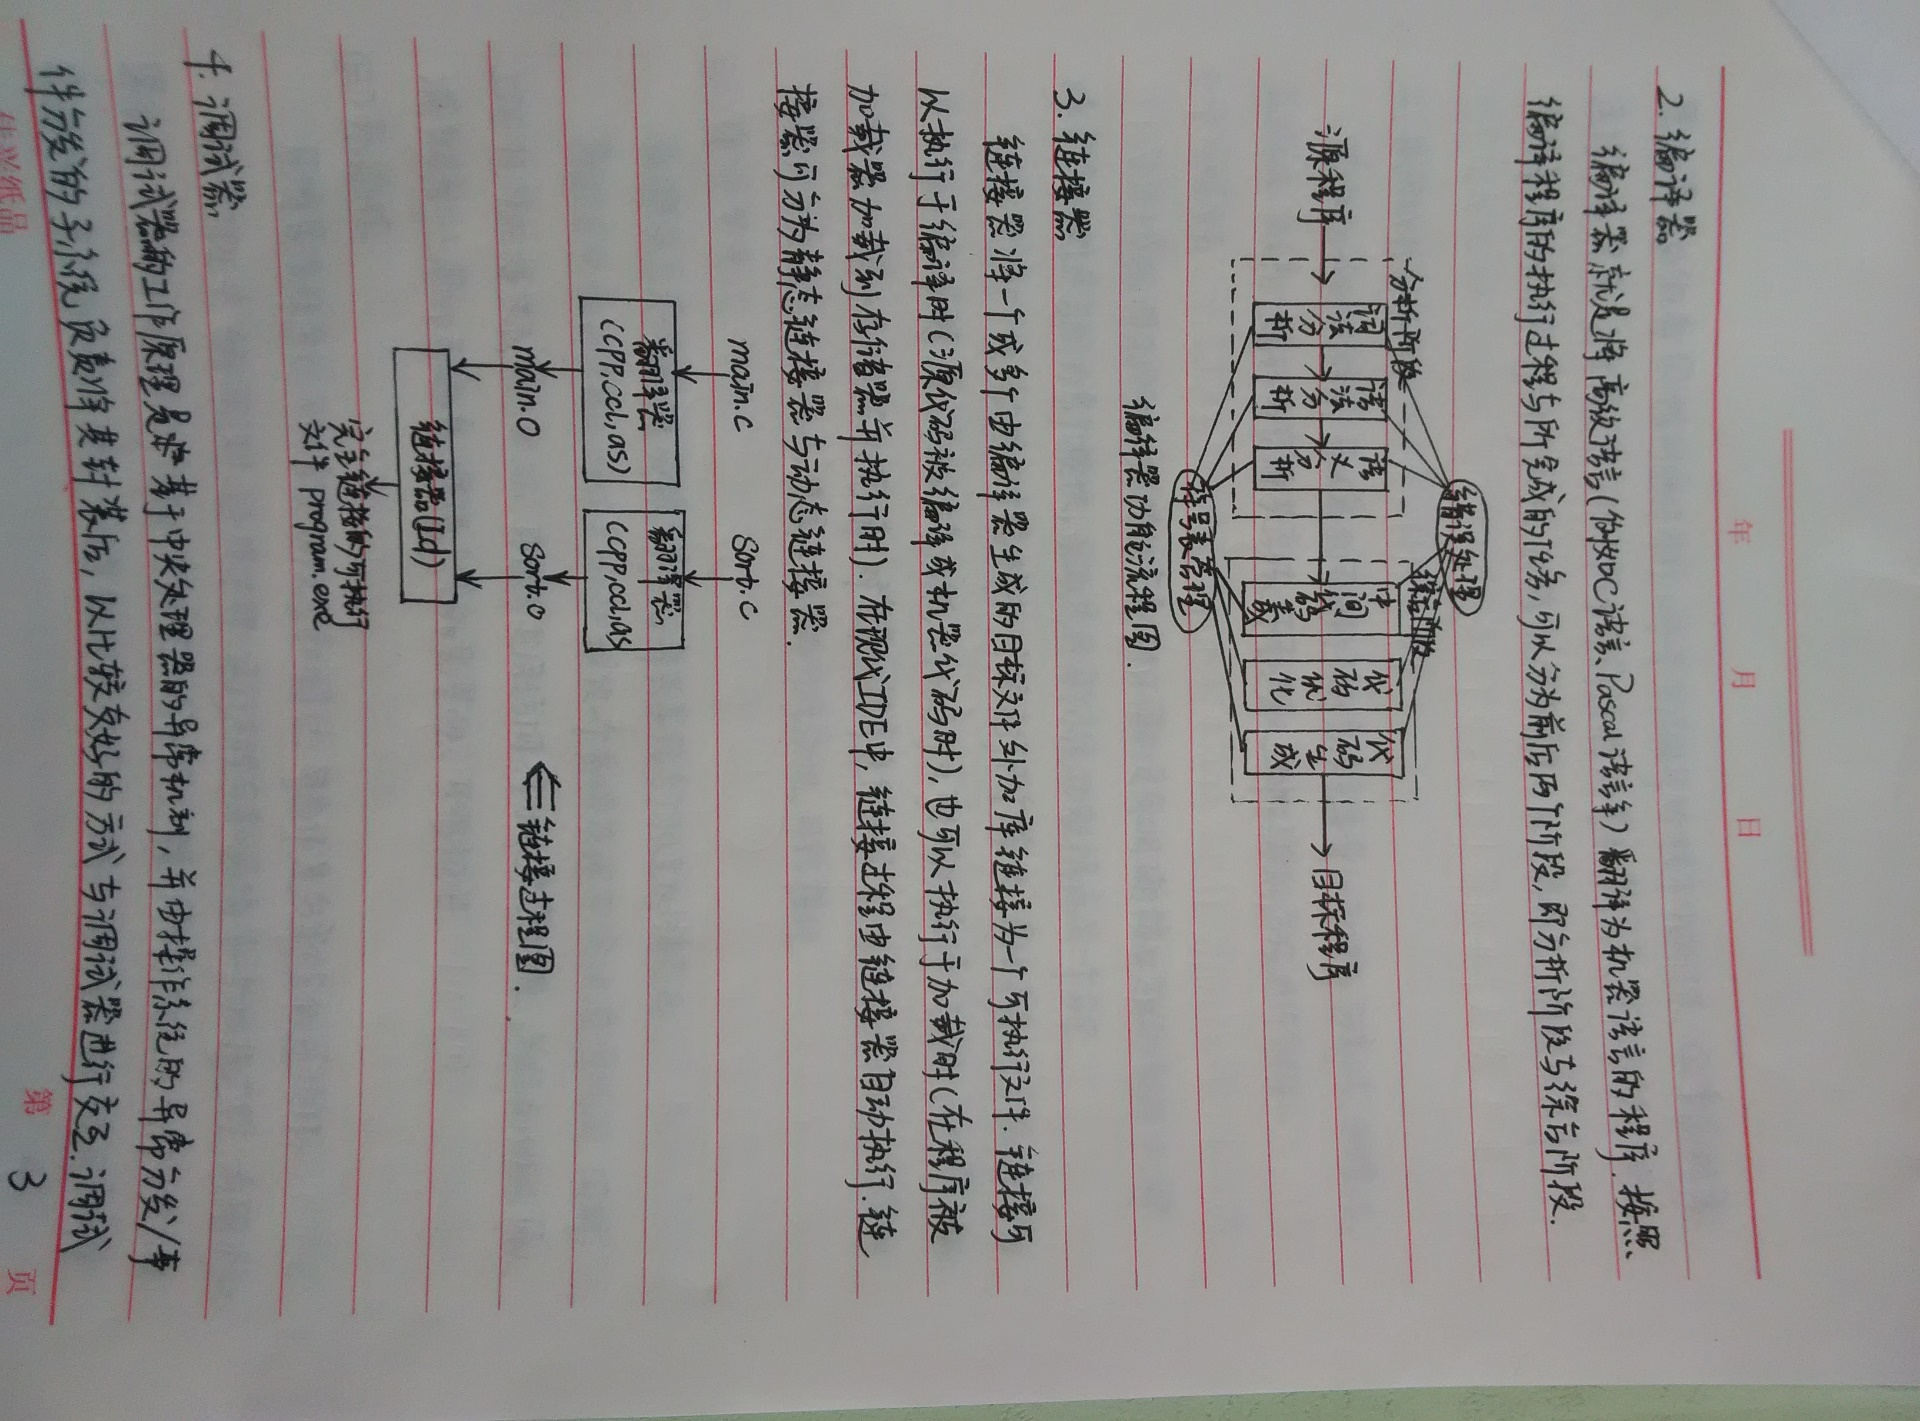 年 月 日
2. 编译器
编译器就是将高级语言(例如C语言、Pascal语言等)翻译为机器语言的程序.按照
编译程序的执行过程与所完成的任务,可以分为前后两个阶段,即分析阶段与综合阶段.
错误处理
分析阶段 综合阶段
源程序 词法分析 语法分析 语义分析 中间代码 代码优化 代码生成 目标程序
符号表管理
编译器功能流程图.
3. 链接器
链接器将一个或多个由编译器生成的目标文件外加库链接为一个可执行文件.链接可
以执行于编译时(源代码被编译或机器代码时),也可以执行于加载时(在程序被
加载器加载到存储器并执行时).在现代IDE中,链接过程由链接器自动执行.链
接器可分为静态链接器与动态链接器.
main.c Sort.c
翻译器 翻译器
(CPP,ccl,as) (CPP,ccl,as
main.o Sort.o ⇐链接过程图.
链接器(ld)
完全链接的可执行
文件 program.exe
4. 调试器
调试器的工作原理是基于中央处理器的异常机制,并由操作系统的异常分发/事
件分发的子系统负责将其封装后,以比较友好的方式与调试器进行交互.调试
佳兴纸品 第 3 页